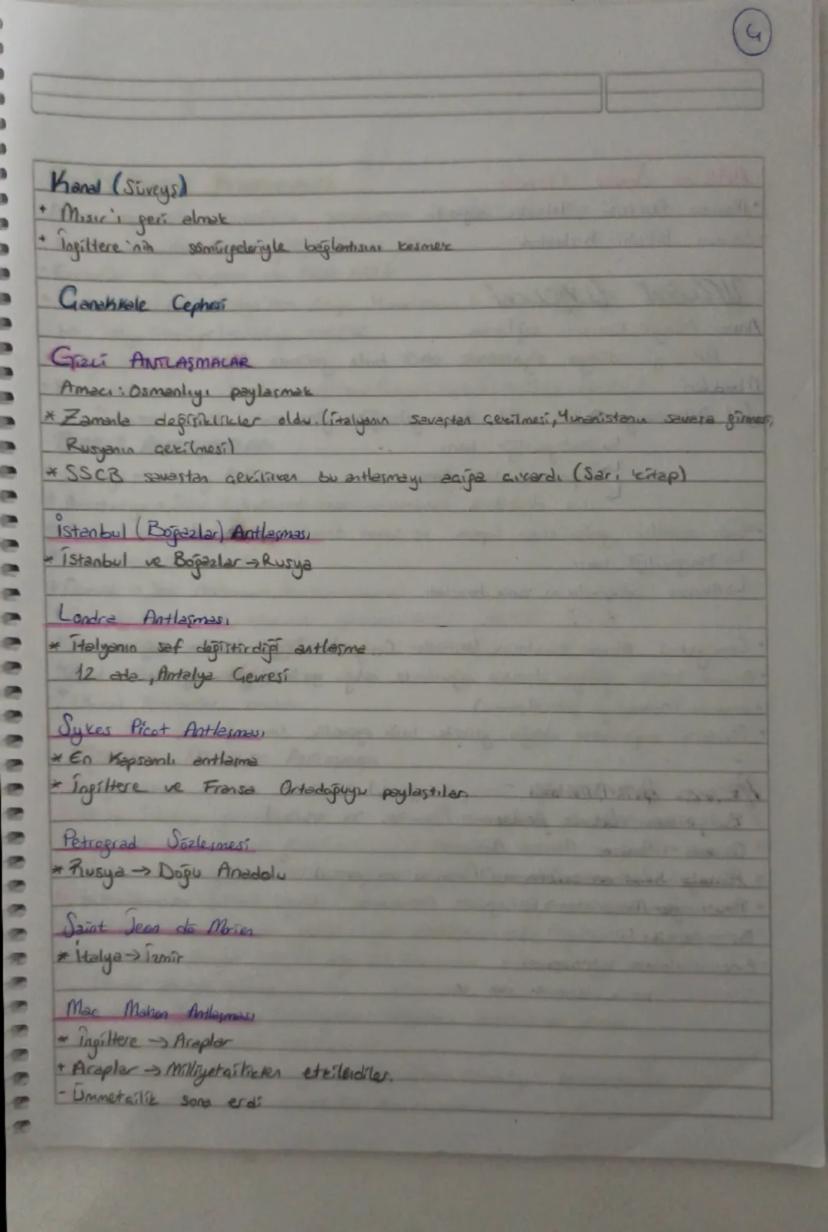 4
Kanal (Süveyş)
* Mısır'ı geri almak
* İngiltere'nin sömürgeleriyle bağlantısını kesmek
Çanakkale Cephesi
GİZLİ ANTLAŞMALAR
Amacı: Osmanlıyı paylaşmak
* Zamanla değişiklikler oldu. (İtalyanın savaştan çekilmesi, Yunanistanın savaşa girmesi,
Rusyanın çekilmesi)
* SSCB savaştan çekilirken bu antlaşmayı açığa çıkardı (Sarı kitap)
İstanbul (Boğazlar) Antlaşması
* İstanbul ve Boğazlar → Rusya
Londra Antlaşması
* İtalyanın saf değiştirdiği antlaşma
12 ada, Antalya Çevresi
Sykes Picot Antlaşması
* En Kapsamlı antlaşma
* İngiltere ve Fransa Ortadoğuyu paylaştılar.
Petrograd Sözleşmesi
* Rusya → Doğu Anadolu
Saint Jean de Morien
* İtalya → İzmir
Mac Mahon Antlaşması
* İngiltere → Araplar
* Araplar → Milliyetçilikten etkilendiler.
- Ümmetçilik sona erdi